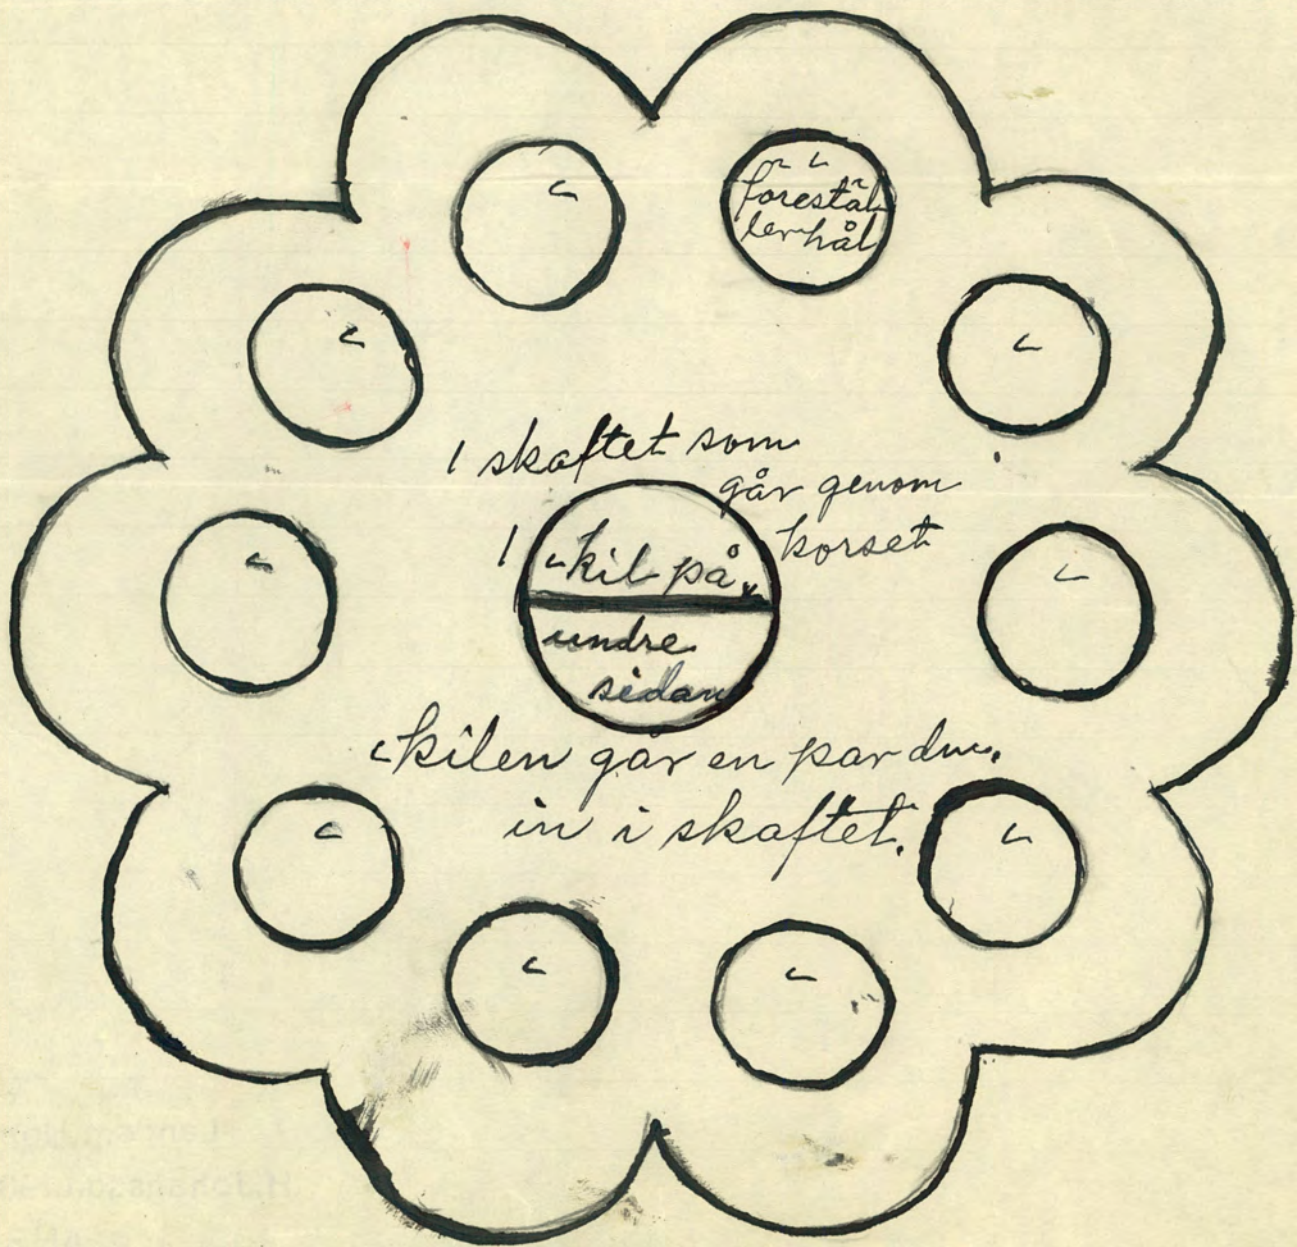 förestäl
ler hål
1 skaftet som
går genom
korset
1 kil på
undre
sidan
kilen går en par dm.
in i skaftet.